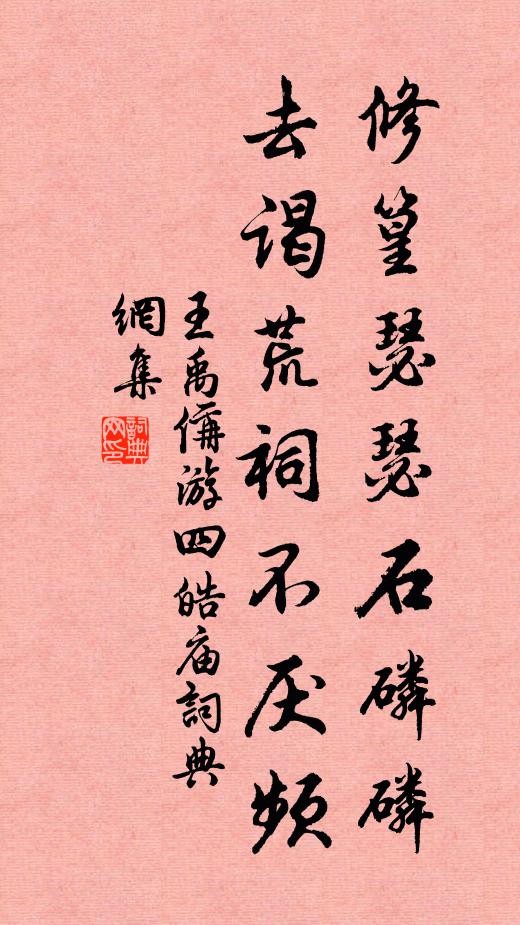 修篁瑟瑟石磷磷
去谒荒祠不厌频
王禹偁游四皓庙詞典
網集
詞典
网印